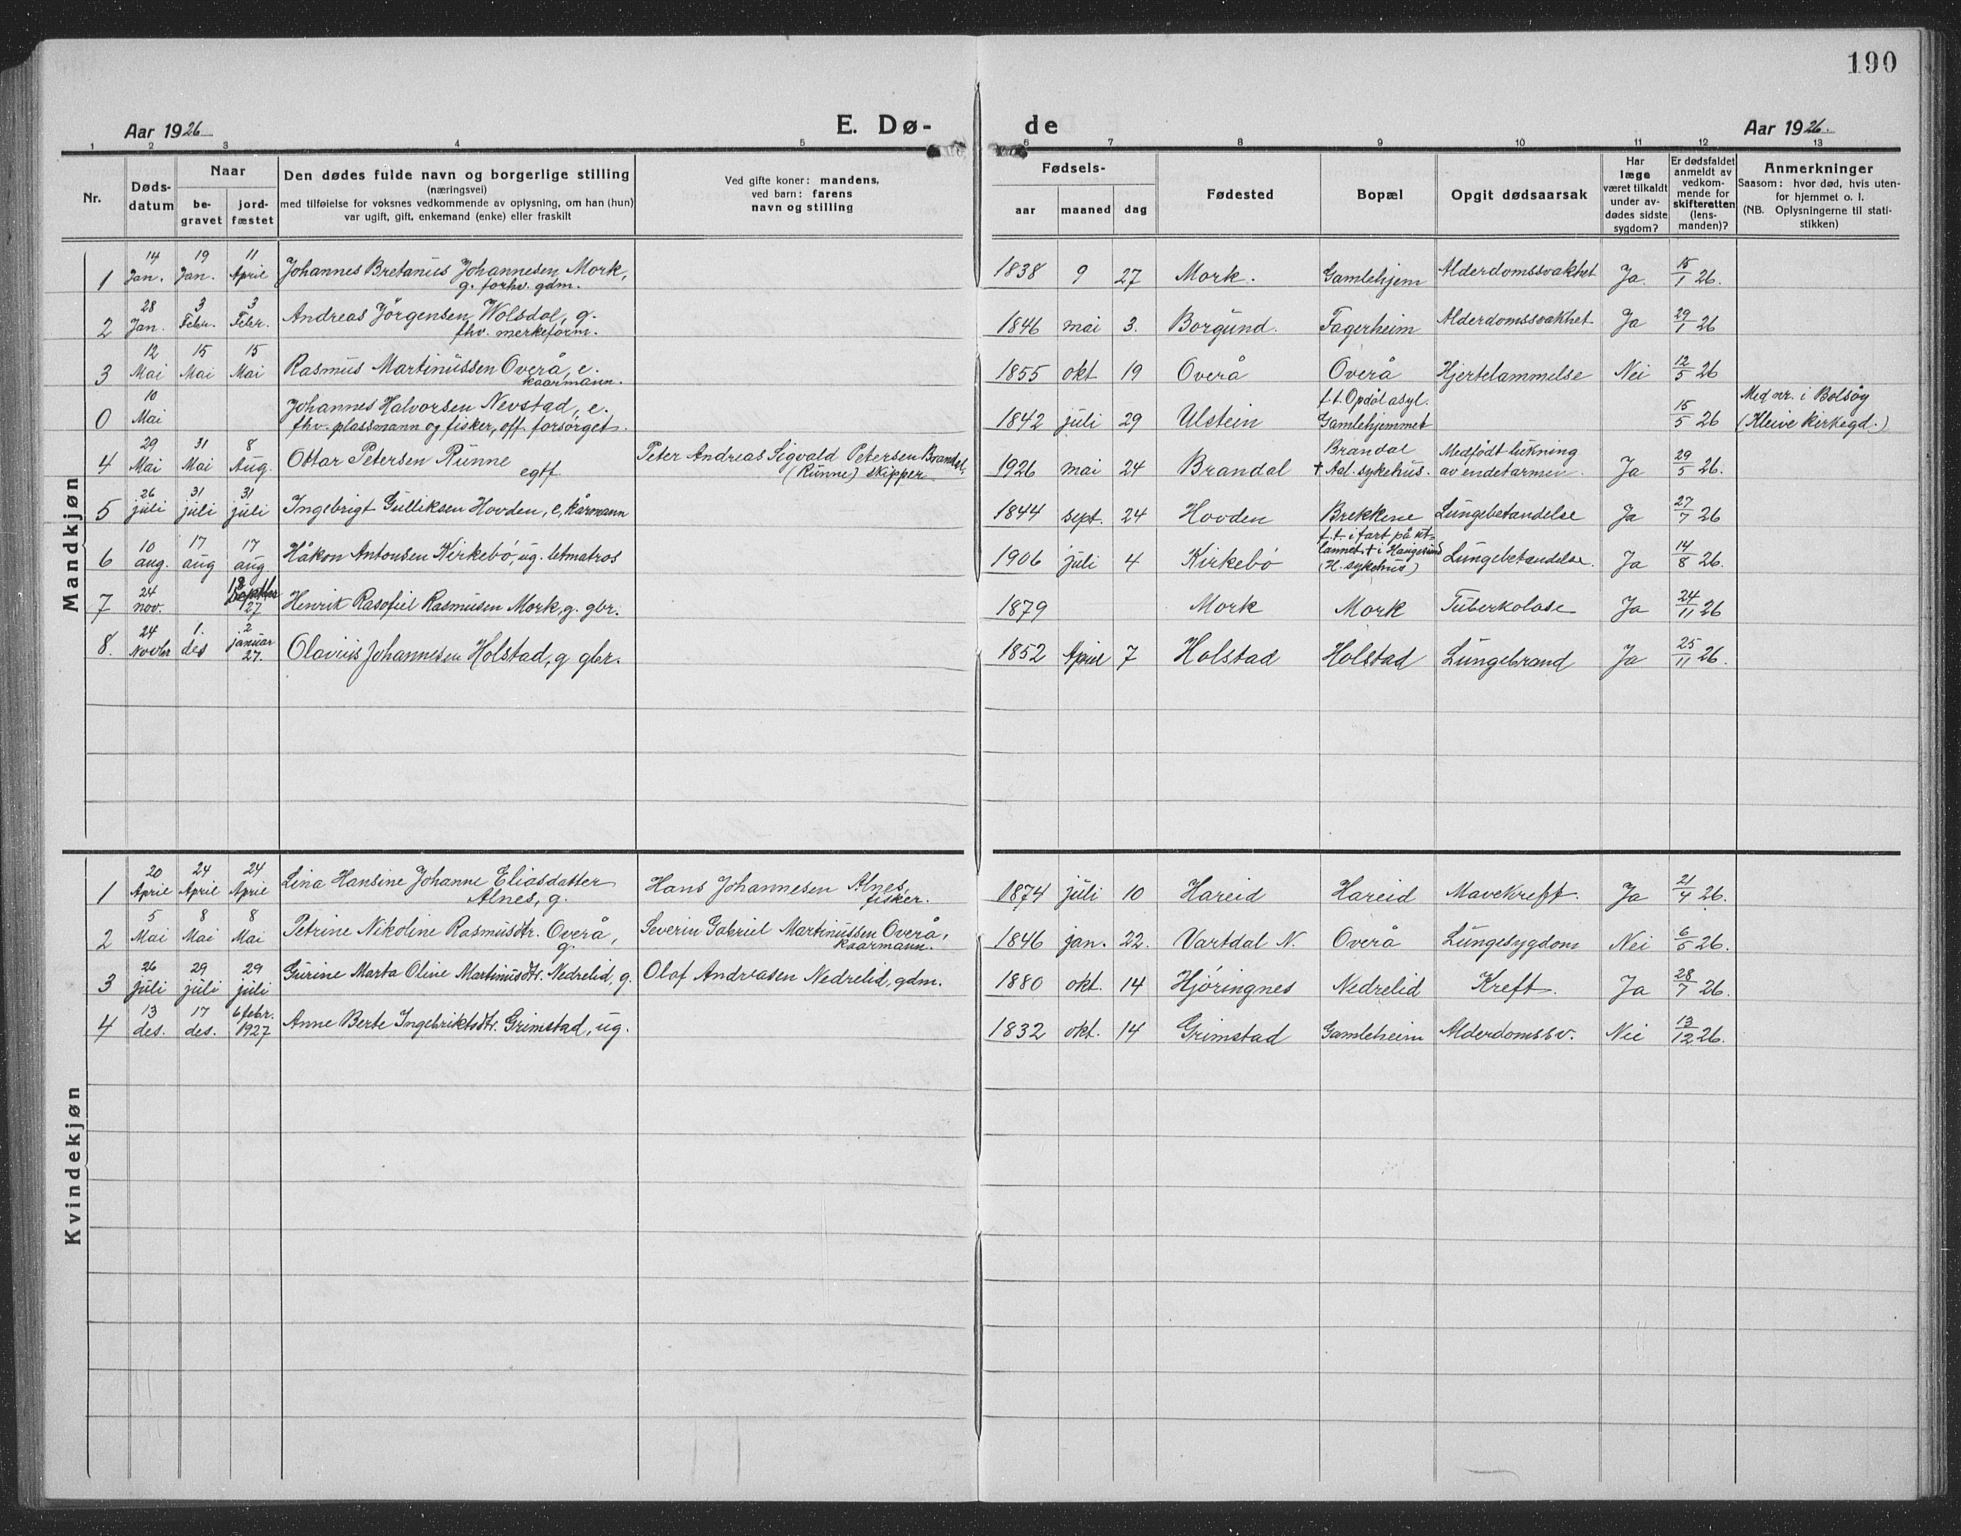 190
Aar 1926 E. Dø- de Aar 1926.
1 2 3 4 5 6 7 8 9 10 11 12 13
Nr.
Døds-
datum
Naar
be-
gravet
jord-
fæstet
Den dødes fulde navn og borgerlige stilling
(næringsvei)
med tilføielse for voksnes vedkommende av oplysning, om han (hun)
var ugift, gift, enkemand (enke) eller fraskilt
Ved gifte koner: mandens,
ved barn: farens
navn og stilling
Fødsels-
aar maaned dag
Fødested
Bopæl
Opgit dødsaarsak
Har
læge
været tilkaldt
under av-
dødes sidste
sygdom?
Er dødsfaldet
anmeldt av
vedkom-
mende for
skifteretten
(lens-
manden)?
Anmerkninger
Saasom: hvor død, hvis uten-
for hjemmet o. l.
(NB. Oplysningerne til stati-
stikken)
Mandkjøn
1 14 Jan. 19 Jan. 11 April Johannes Bretanus Johannesen Mork, 1838 9 27 Mork. Gamlehjem Alderdomssvakhet Ja. 15/1 26.
g. forhv. gdm.
2 28 Jan. 3 Febr. 3 Febr. Andreas Jörgensen Wolsdal, g. 1846 mai 3. Borgund. Fagerheim Alderdomssvakhet Ja 29/1 26
fhv. merkeform.
3 12 Mai 15 Mai 15 Mai Rasmus Martinussen Overå, e. 1855 okt 19 Overå Overå Hjertelammelse Nei 12/5 26
kaarmann.
0 10 Mai Johannes Halvorsen Nevstad, e. 1842 juli 29 Ulstein f.t. Opdöl asyl. 15/5 26 Med nr. i Bolsöy
fhv. plassmann og fisker, off. forsörget. Gamlehjemmet (Kleive kirkegd.)
4 29 Mai 31 Mai 8 Aug. Ottar Petersen Runne Peter Andreas Sigvald Petersen Brandal, 1926 mai 24 Brandal Brandal Medfödt lukning Ja 29/5 26.
egtf (Runne) skipper † Aal. sykehus. av endetarmen.
5 26 juli 31 juli 31 juli Ingebrigt Gulliksen Hovden, e, kårmann 1844 sept. 24 Hovden Brekkene Lungebetandelse Ja 27/7 26
6 10 aug. 17 aug 17 aug. Håkon Antonsen Kirkebö, ug. letmatros 1906 juli 4 Kirkebö f.t. i fart på ut- Lungebetandelse. Ja 14/8 26.
lannet † i Haugesund
(H. sykehus)
7 24 nov. 27 Henrik Rasofiel Rasmusen Mork, g. gbr. 1879 Mork Mork Tuberkolose Ja 24/11 26
8. 24 Novbr 1. des 2 januar 27. Olavius Johannesen Holstad, g gbr. 1852 April 7 Holstad Holstad Lungebrand Ja 25/11 26.
Kvindekjøn
1 20 April 24 April 24 April Lina Hansine Johanne Eliasdatter Hans Johannesen Alnes, 1874 juli 10 Hareid Hareid Mavekreft. Ja 21/4 26.
Alnes, g. fisker.
2 5 Mai 8 Mai 8 Mai Petrine Nikoline Rasmusdtr. Overå, Severin Gabriel Martinussen Overå, 1846 jan. 22. Vartdal N. Overå Lungesygdom Nei 6/5 26.
g. kaarmann.
3 26 juli 29 juli 29 juli Gurine Marta Oline Martinusdtr. Nedrelid, g. Olaf Andreasen Nedrelid, gdm. 1880 okt. 14 Hjöringnes Nedrelid Kreft. Ja 28/7 26.
4 13 des. 17 des. 6 febr. 1927 Anne Berte Ingebriktsdtr. Grimstad, ug. 1832 okt. 14 Grimstad Gamleheim Alderdomssv. Nei 13/12 26.